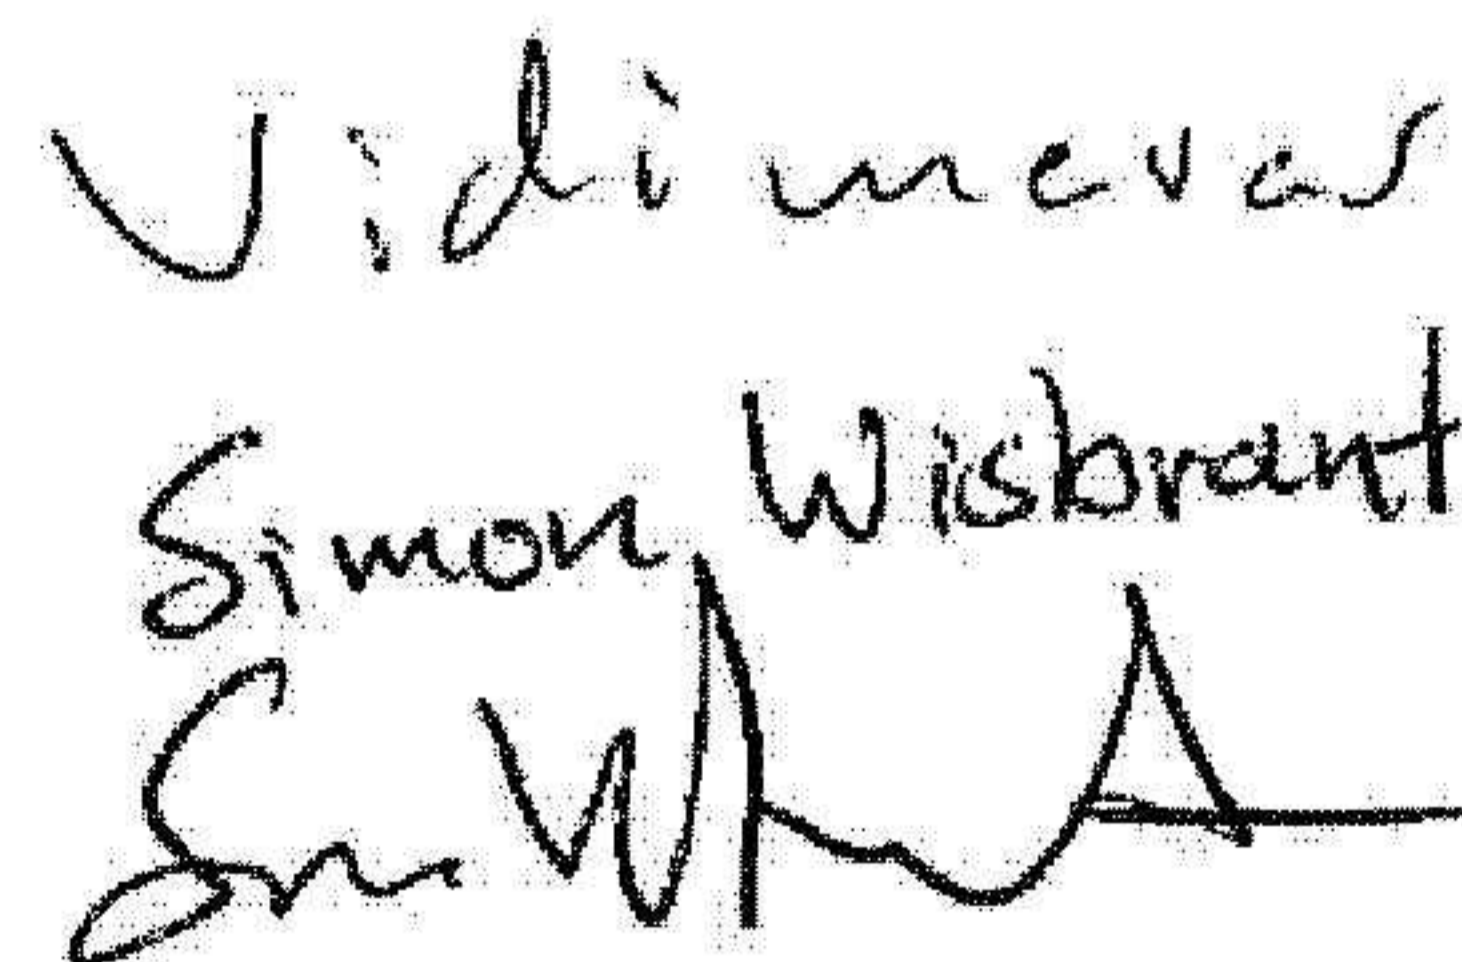 Vidimeras
Simon Wisbrant